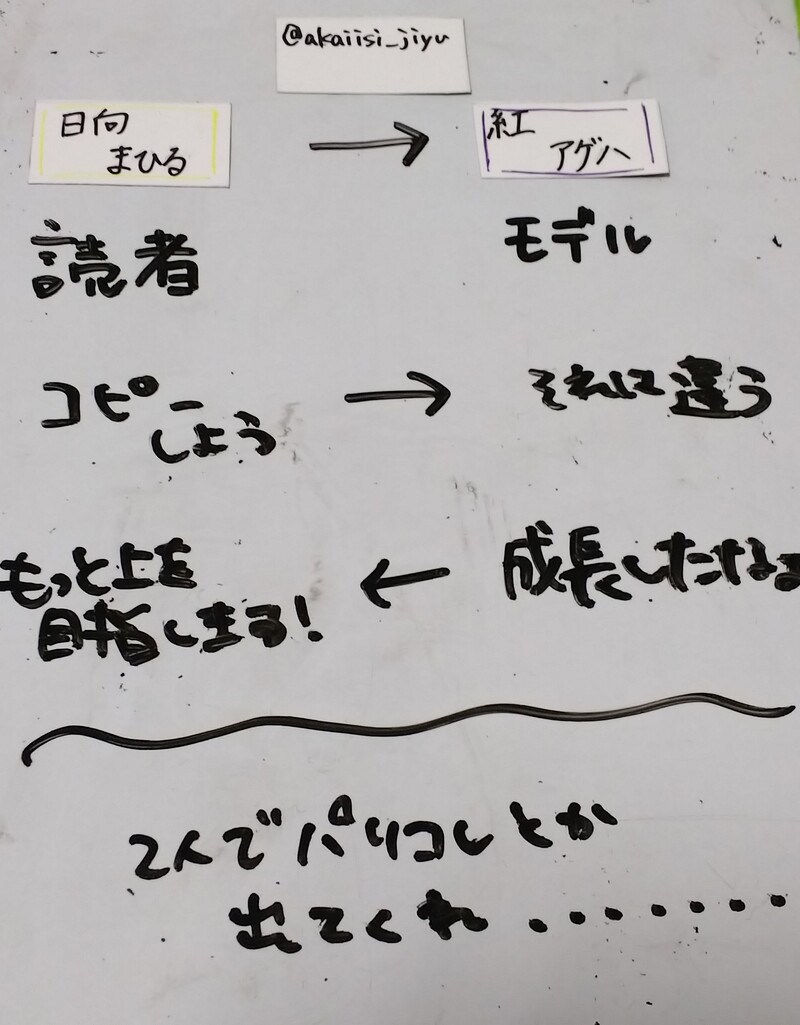 @akaiisi_jiyu
日向
まひる
→
紅
アゲハ
読者
モデル
コピー
しよう
→
それは違う
もっと上を
目指しまる!
←
成長したなる
2人でパリコレとか
出てくれ・・・・・・・